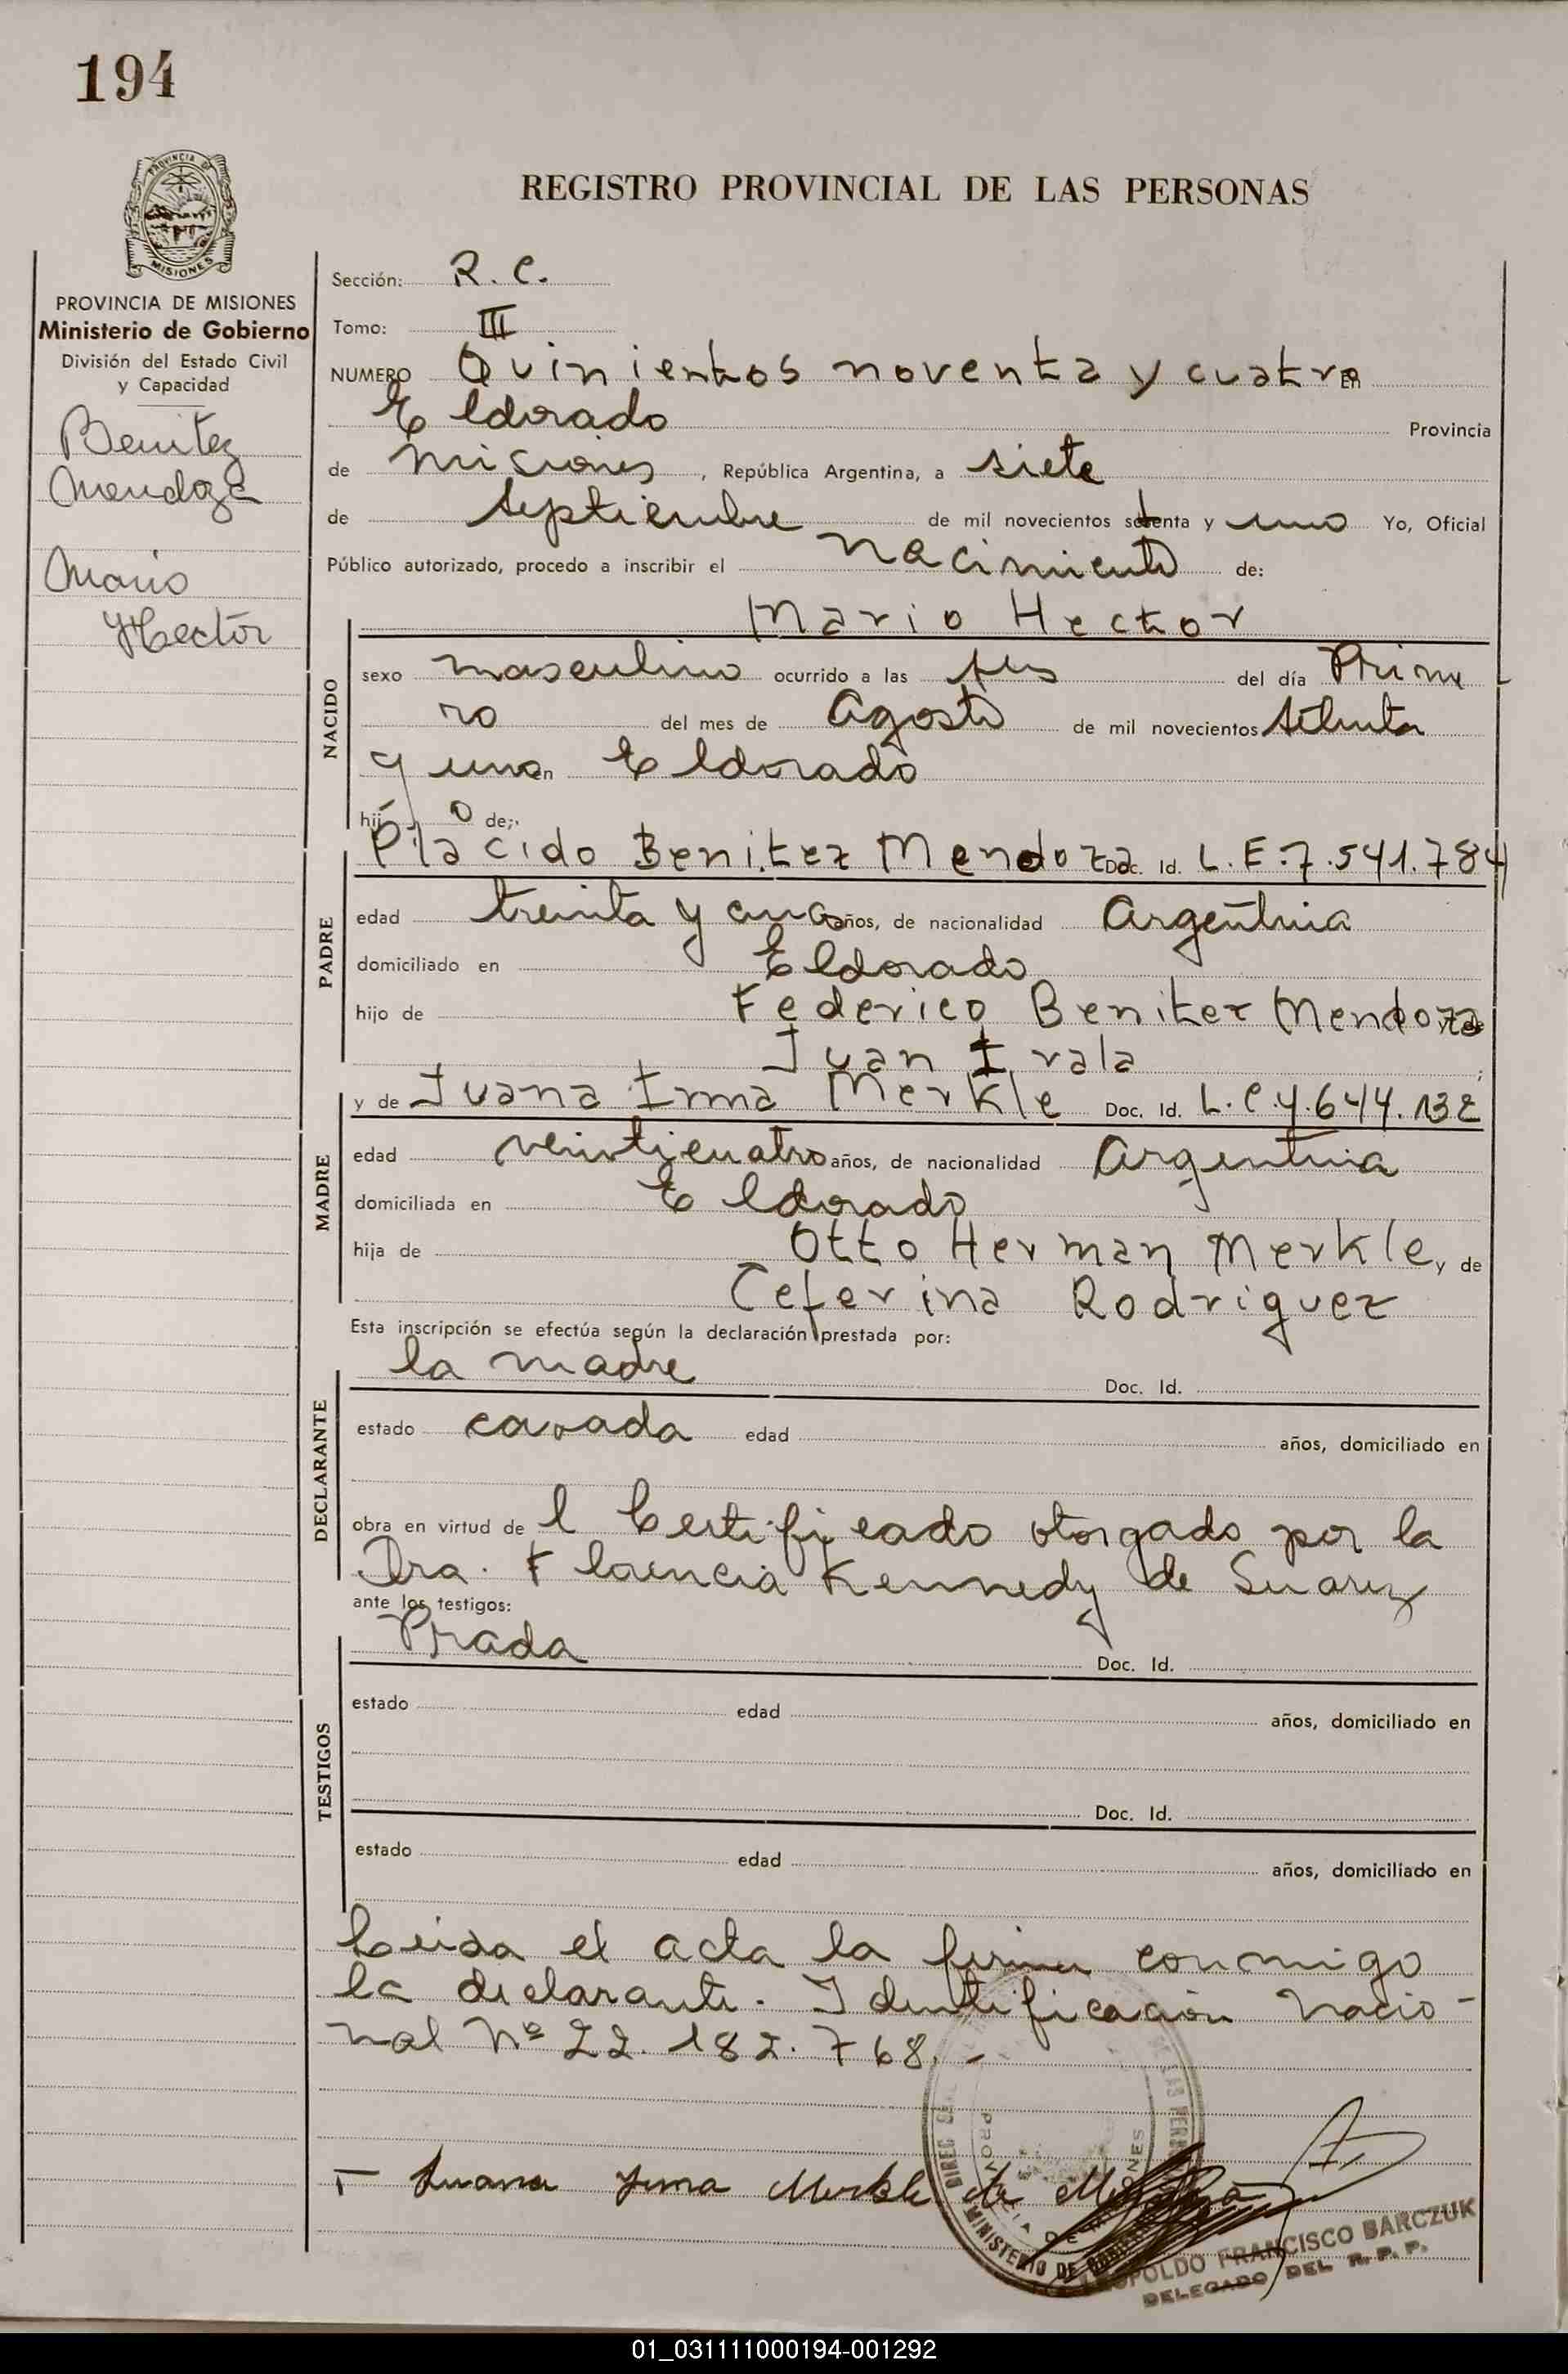 194
PROVINCIA DE
MISIONES
REGISTRO PROVINCIAL DE LAS PERSONAS
PROVINCIA DE MISIONES
Ministerio de Gobierno
División del Estado Civil
y Capacidad
Benitez
Mendoza
Mario
Hector
Sección: R. C.
Tomo: III
NUMERO Quinientos noventa y cuatro En
Eldorado Provincia
de Misiones, República Argentina, a siete
de septiembre de mil novecientos setenta y uno Yo, Oficial
Público autorizado, procedo a inscribir el nacimiento de:
Mario Hector
NACIDO
sexo masculino ocurrido a las del día Prime
ro del mes de Agosto de mil novecientos setenta
y uno en Eldorado
hijo de:
Placido Benitez Mendoza Doc. Id. L. E. 7.541.784
PADRE
edad treinta y años, de nacionalidad Argentina
domiciliado en Eldorado
hijo de Federico Benitez Mendoza y de
Juan Irala
y de Juana Irma Merkle Doc. Id. L. C. 4.644.132
MADRE
edad veinticuatro años, de nacionalidad Argentina
domiciliada en Eldorado
hija de Otto Herman Merkle, y de
Ceferina Rodriguez
Esta inscripción se efectúa según la declaración prestada por:
la madre Doc. Id.
DECLARANTE
estado casada edad años, domiciliado en
obra en virtud del Certificado otorgado por la
Dra. Florencia Kennedy de Suarez
ante los testigos:
Prada Doc. Id.
TESTIGOS
estado edad años, domiciliado en
Doc. Id.
estado edad años, domiciliado en
Leida el acta la firma conmigo
la declarante. Identificación Nacio-
nal Nº 22.182.768.-
Juana Irma Merkle de
MINISTERIO DE
LEOPOLDO FRANCISCO BARCZUK
DELEGADO DEL R. P. P.
01_031111000194-001292